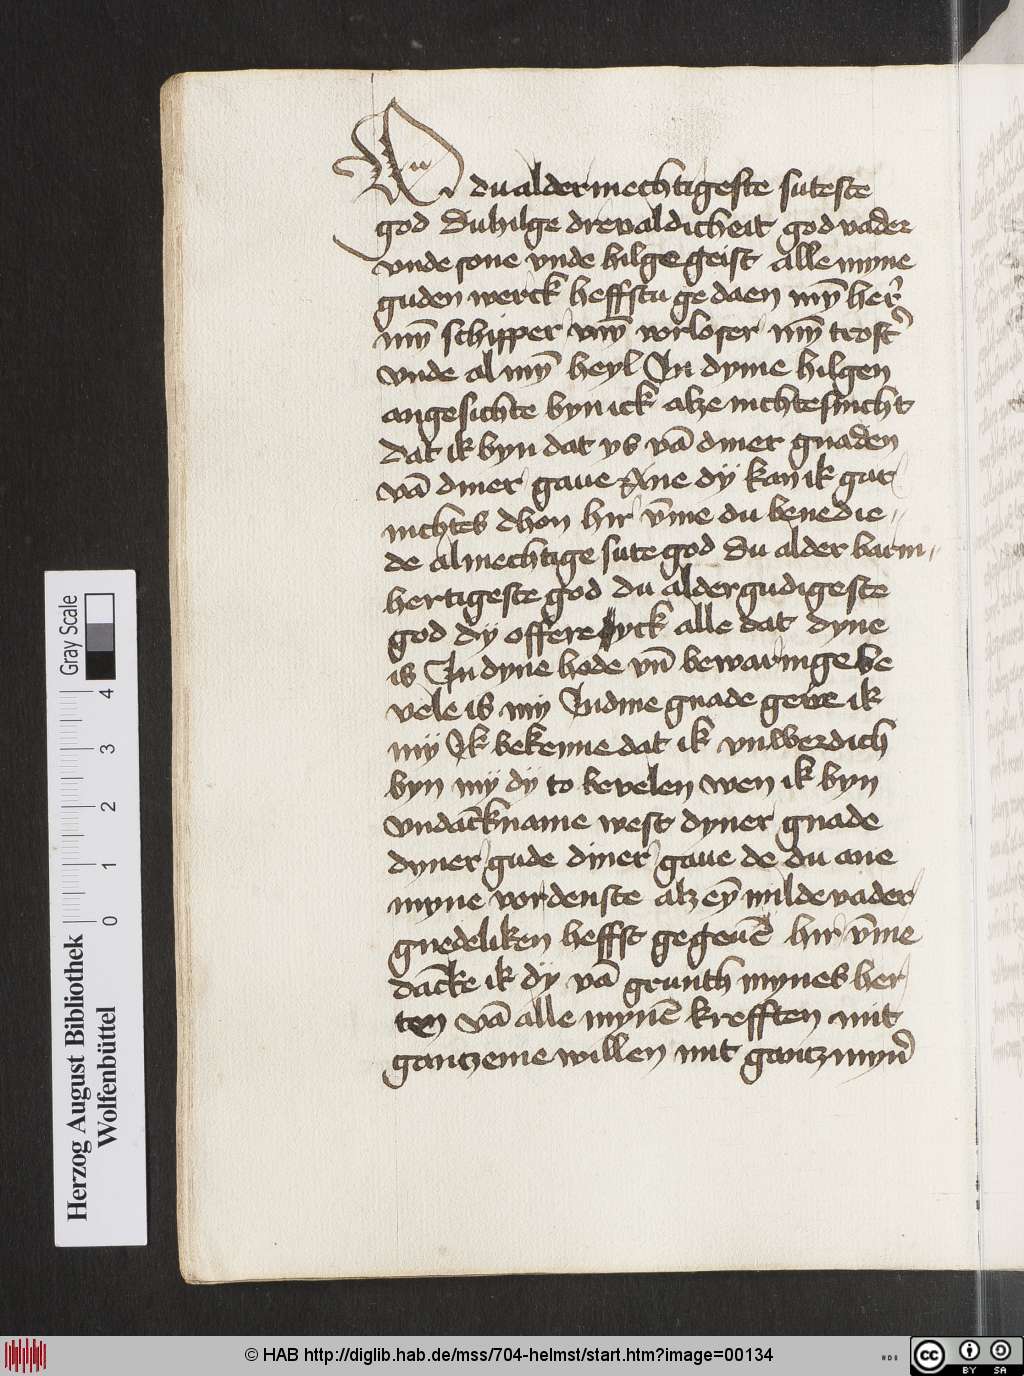 du aldermechtigeste suteste
god Du hilge drevaldicheit god vader
vnde sone vnde hilge geist alle myne
guden werck heffstu ge daen mȳ her
mȳ schipper vnn̄ vorloser mȳ trost
vnde al mȳ heyl In dyme hilgen
angesichte byn ick alze nichtesnicht
Dat ik byn dat ys vā diner gnaden
vā diner gaue Ane dÿ kan ik gar
nichtes dhon hir v̄me du benedie-
de almechtige sute god Du alder barm-
hertigeste god du aldergudigeste
god dÿ offere yck alle dat dyne
is In dyne hode vn̄ bewaringe be
vele is my In dine gnade geve ik
mÿ Ik bekenne dat ik vnwerdich
byn mÿ dÿ to bevelen wen ik byn
vndāckname west dyner gnade
dyner gude diner gaue de du ane
myne vordenste alz eȳ milde vader
gnedeliken heffst gegeuē hir v̄me
dācke ik dÿ vā grunth mynes her
ten vā alle mynē krefften mit
gantzeme willen mit gantz myn
Herzog August Bibliothek
Wolfenbüttel
Gray Scale
0 1 2 3 4
© HAB http://diglib.hab.de/mss/704-helmst/start.htm?image=00134
cc BY SA